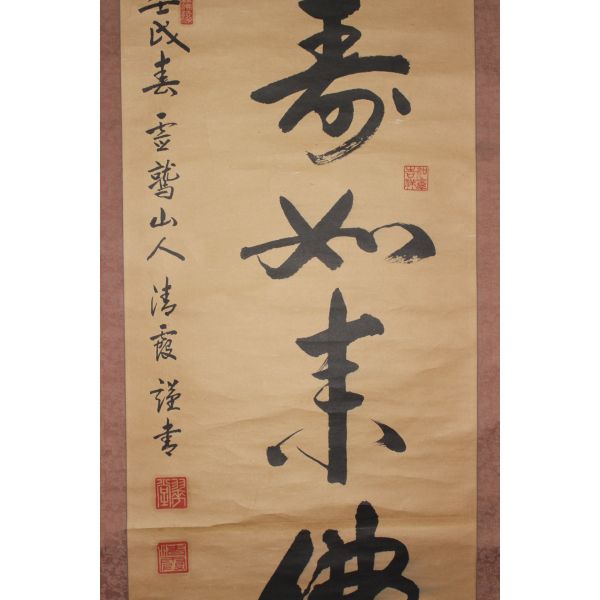 寿如来佛
壬戌春霊鷲山人清霞謹書